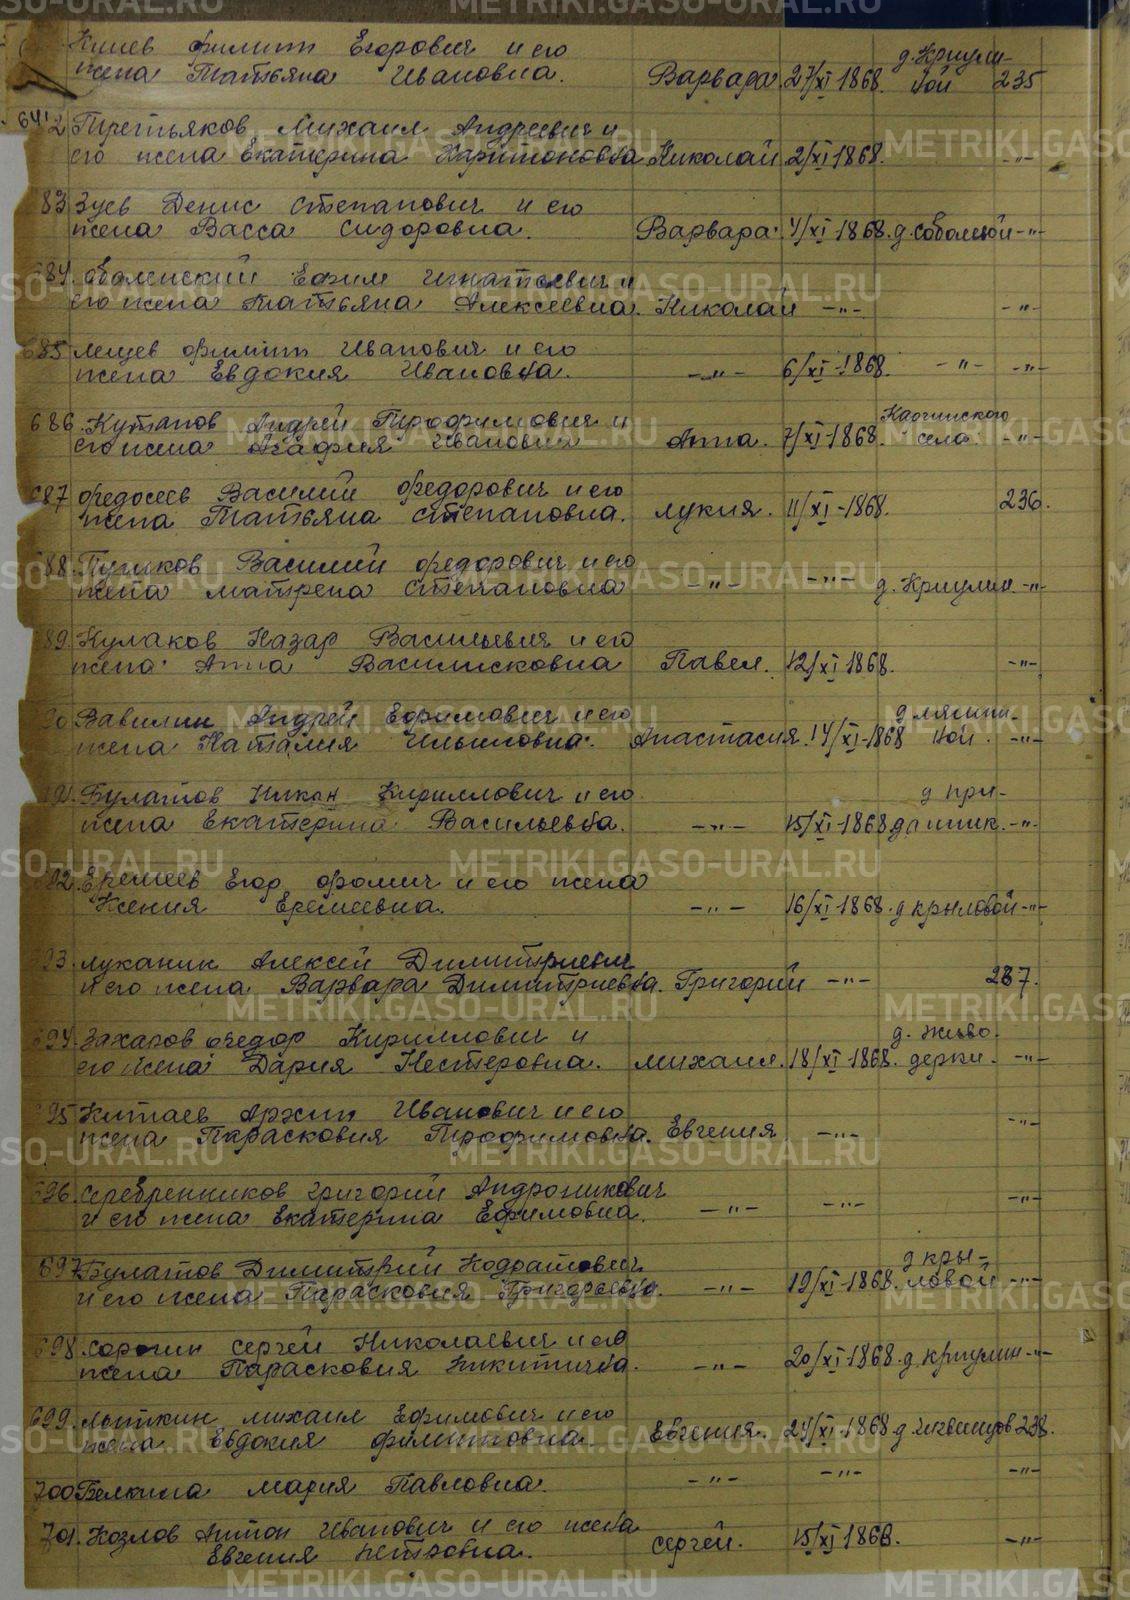 Филипп Егорович и его
жена Татьяна Ивановна. Варвара. 27/XI 1868. д. Криулиной 235
Третьяков Михаил Андреевич и
его жена Екатерина Харитоновна Николай 2/XI 1868. -"-
83 Зуев Денис Степанович и его
жена Васса Сидоровна. Варвара. 4/XI 1868. -"-
684. Оболенский Ефим Игнатьевич и
его жена Татьяна Алексеевна. Николай -"- -"-
685 Лещев Филипп Иванович и его
жена Евдокия Ивановна. -"- 6/XI-1868. -"- -"-
686. Андрей Трофимович и
его жена Агафия Ивановна Анна. 7/XI-1868. села. -"-
687 Федосеев Василий Федорович и его
жена Татьяна Степановна. Лукия. 11/XI-1868. 236.
688. Василий Федорович и его
жена Матрена Степановна -"- -"- д. Криулин. -"-
89. Кулаков Назар Васильевич и его
жена Анна Василисковна Павел. 12/XI 1868. -"-
90 Вавилин Андрей Ефимович и его
жена Наталия Ильиновна. Анастасия. 14/XI-1868 -"-
Булатов Никон Кириллович и его
жена Екатерина Васильевна. -"- 15/XI-1868 -"-
692. Еремеев Егор Фомич и его жена
Ксения Еремеевна. -"- 16/XI-1868. д крыловой -"-
93. Луканик Алексей Димитриевич
и его жена Варвара Димитриевна. Григорий -"- 237.
694. Захаров Федор Кириллович и
его жена Дария Нестеровна. Михаил. 18/XI-1868. -"-
95 Китаев Архип Иванович и его
жена Парасковия Трофимовна. Евгения -"- -"-
696. Серебренников Григорий Андроникович
и его жена Екатерина Ефимовна. -"- -"- -"-
697 Булатов Димитрий Кодратович
и его жена Парасковия Григорьевна. -"- 19/XI-1868. д крыловой -"-
698. Сорочин Сергей Николаевич и его
жена Парасковия Никитична. -"- 20/XI-1868. д криулин -"-
699. Лыткин Михаил Ефимович и его
жена Евдокия Филипповна. Евгения. 24/XI-1868 238.
700 Белкина Мария Павловна. -"- -"- -"-
701. Козлов Антон Иванович и его жена
Евгения Петровна. Сергей. 15/XI 1868. -"-
METRIKI.GASO-URAL.RU